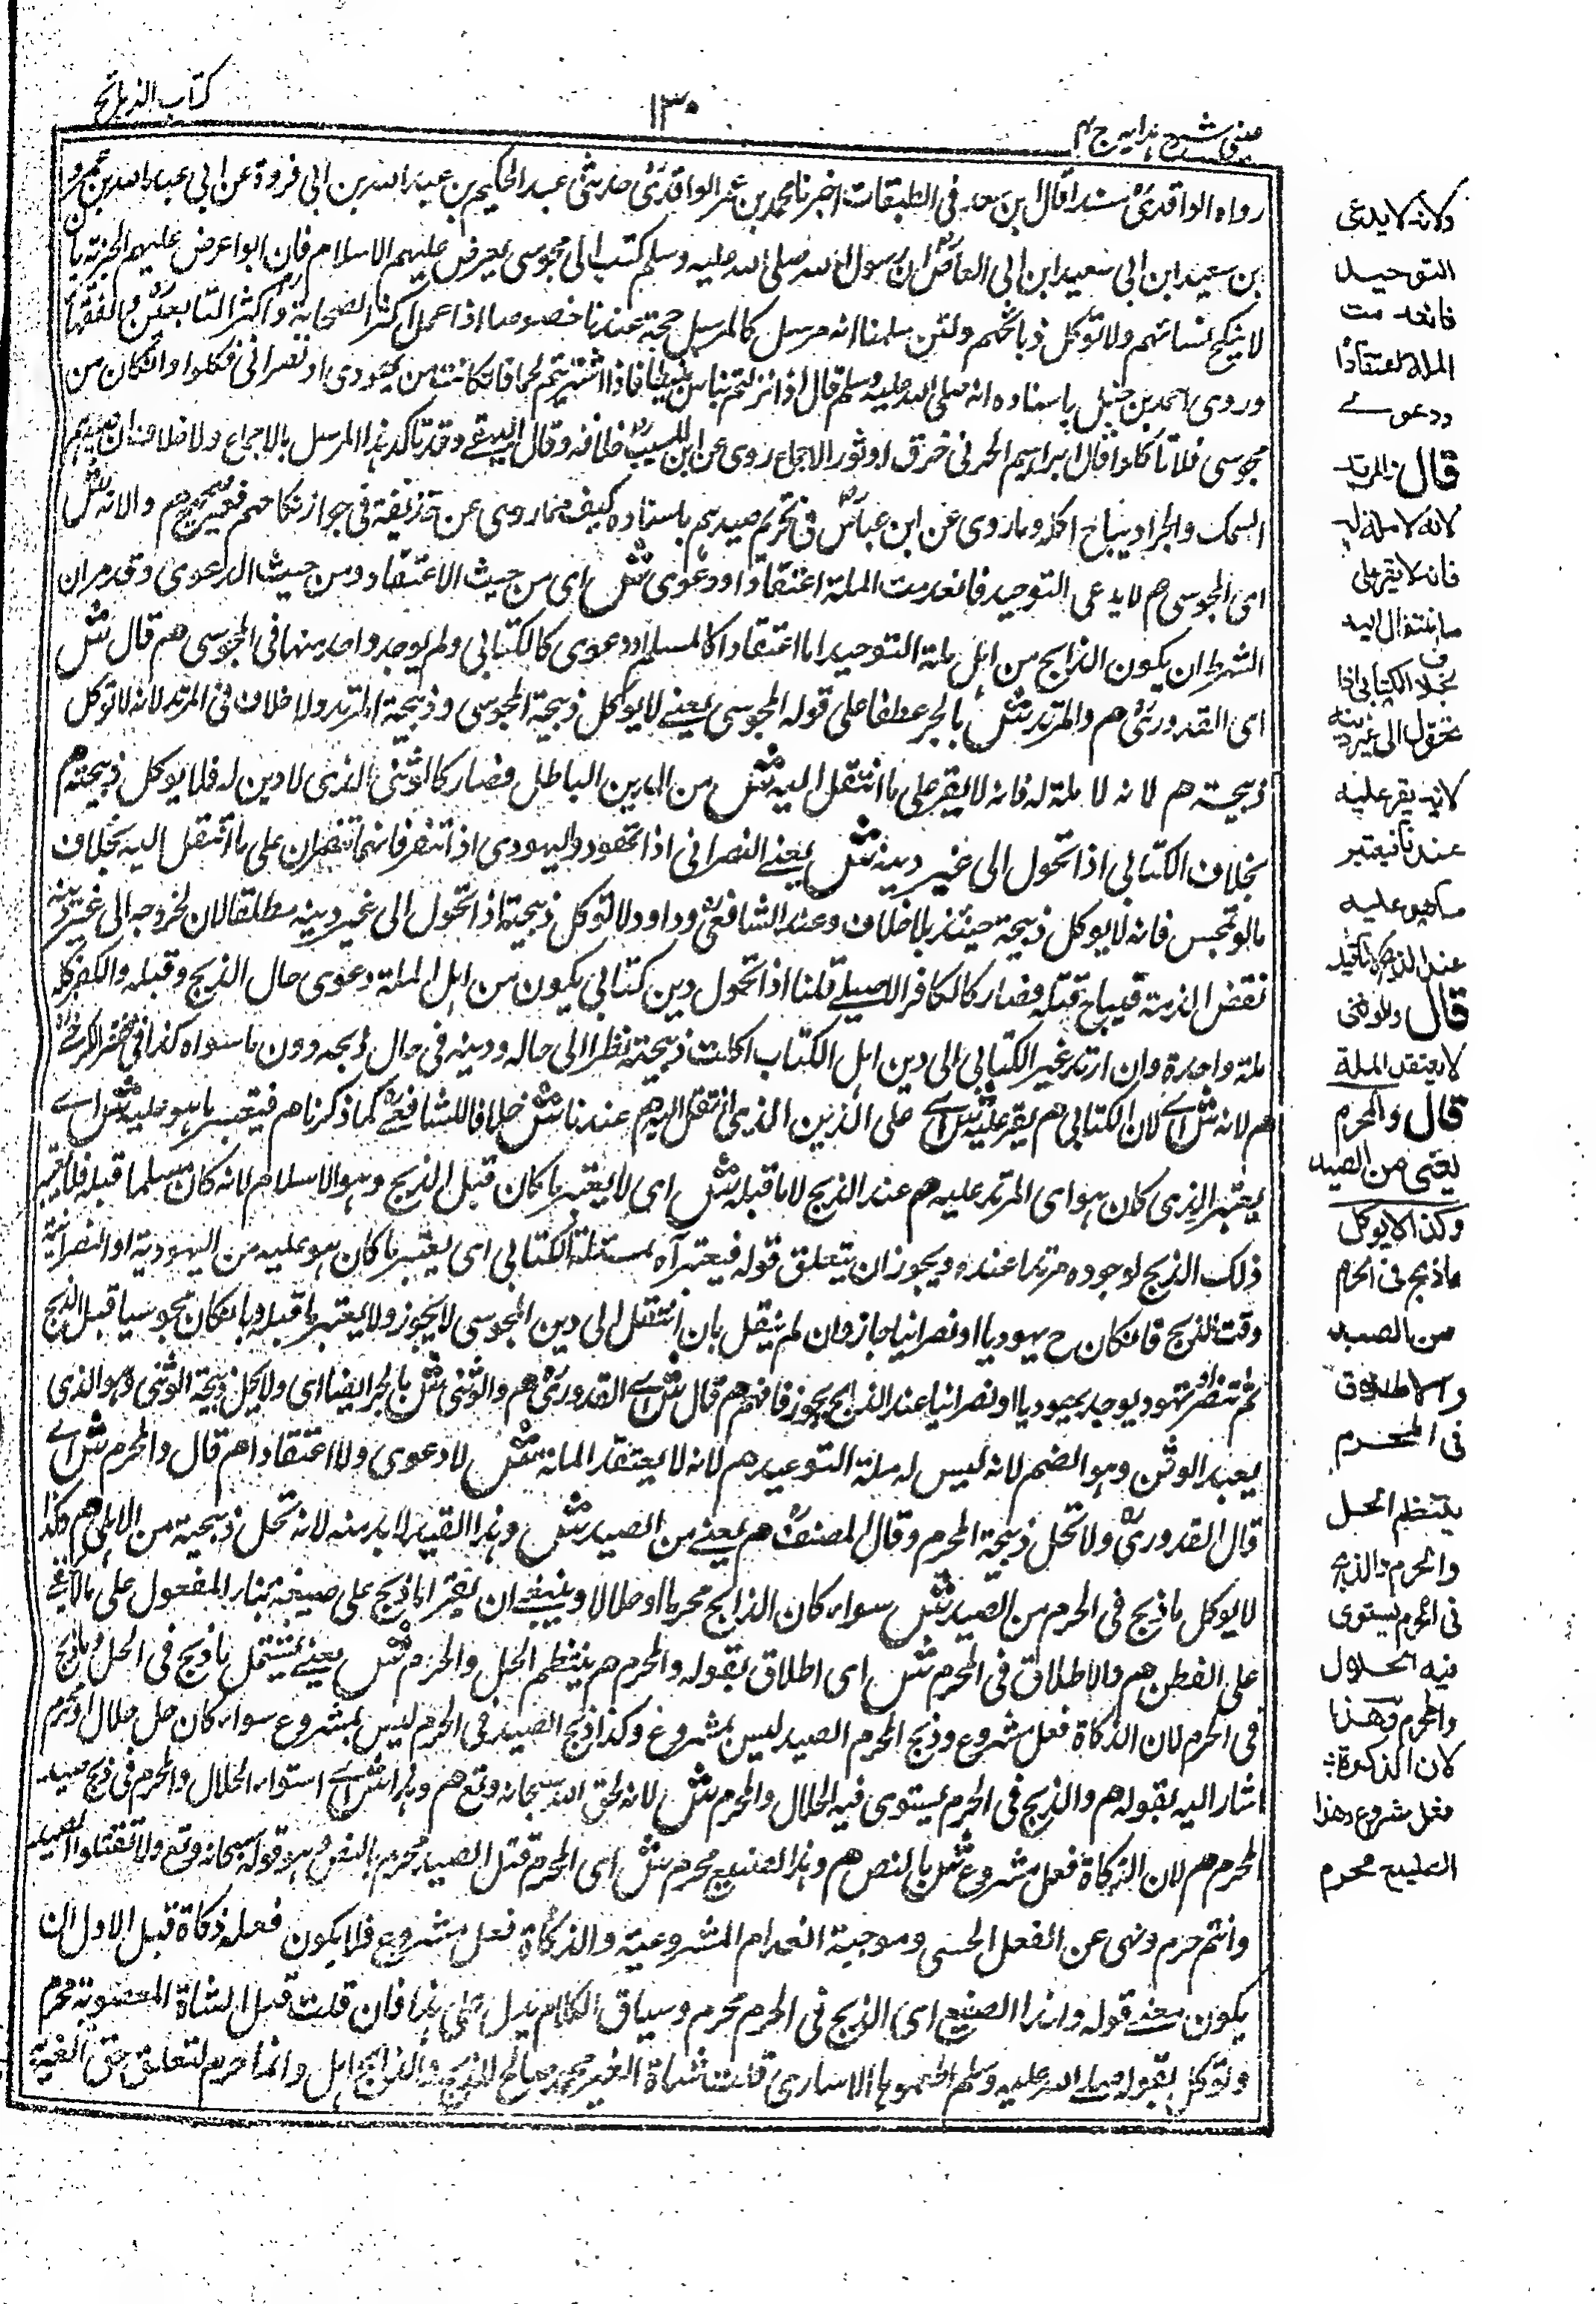 عيني شرح هدايه ج ٤
١٣٠
كتاب الذبائح
رواه الواقدي مسندا قال ابن سعد في الطبقات اخبرنا محمد بن عمر الواقدي حدثني عبد الحكيم بن عبد الله بن ابي فروة عن ابي عبد الله بن عمرو
بن سعيد ابن ابي سعيد ابن ابي العاص ان رسول الله صلى الله عليه وسلم كتب الى مجوسي يعرض عليهم الاسلام فان ابوا عرض عليهم الجزية بان
لا ينكح نسائهم ولا توكل ذبائحهم ولئن سلمنا انه مرسل كالمرسل حجة عندنا خصوصا اذا عمل اكثر الصحابة و اكثر التابعين والفقهاء
وروى احمد بن حنبل باسناده انه صلى الله عليه وسلم قال اذا نزلتم بناس نبيطا فاذا اشتريتم لحما فان كانت من يهودي او نصراني فكلوا وان كان من
مجوسي فلا تاكلوا قال ابراهيم الحربي خرق ابو ثور الاجماع روى عن ابن المسيب خلافه وقال البيهقي وقد تاكد هذا المرسل بالاجماع ولا خلاف ان صيدهم
السمك والجراد يباح اكله وما روى عن ابن عباس في تحريم صيدهم باسناده كيف فما روى عن حذيفة في جواز نكاحهم فغير صحيح هم ولانه ش
اى المجوسي هم لا يدعى التوحيد فانعدمت الملة اعتقادا ودعوى ش اى من حيث الاعتقاد ومن حيث الدعوى وقد مر ان
الشرط ان يكون الذابح من اهل ملة التوحيد اما اعتقادا كالمسلم او دعوى كالكتابي ولم يوجد واحد منها في المجوسي هم قال ش
اى القدوري هم والمرتد ش بالجر عطفا على قوله المجوسي يعني لا يوكل ذبيحة المجوسي وذبيحة المرتد ولا خلاف في المرتد لانه لا توكل
ذبيحته هم لانه لا ملة له فانه لا يقر على ما انتقل اليه ش من الدين الباطل فصار كالوثني الذي لا دين له فلا يوكل ذبيحته هم
بخلاف الكتابي اذا تحول الى غير دينه ش يعني النصراني اذا تهود واليهودي اذا تنصر فانهما تقران على ما انتقل اليه بخلاف
ما لو تمجس فانه لا يوكل ذبيحة حينئذ بلا خلاف وعند الشافعي وداود لا توكل ذبيحته اذا تحول الى غير دينه مطلقا لان لخروجه الى غير دينه
نقض الذمة فيباح قتله فصار كالكافر الاصيلي قلنا اذا تحول دين كتابي يكون من اهل الملة دعوى حال الذبح وقبله والكفر كله
ملة واحدة وان ارتد غير الكتابي الى دين اهل الكتاب اكلت ذبيحته نظرا الى حاله ودينه في حال ذبحه دون ما سواه كذا في مختصر الكرخي
هم لانه ش اى لان الكتابي هم يقر عليه ش اى على الدين الذي انتقل اليه هم عندنا ش خلافا للشافعي كما ذكرنا هم فيعتبر ما هو عليه ش اى
يعتبر الذي كان هو اى المرتد عليه هم عند الذبح لا ما قبله ش اى لا يعتبر ما كان قبل الذبح وهو الاسلام لانه كان مسلما قبله فلا يعتبر
ذلك الذبح لوجوده مرتدا عنده ويجوز ان يتعلق قوله فيعتبر آه بمسئلة الكتابي اى يعتبر ما كان هو عليه من اليهودية او النصرانية
وقت الذبح فان كان ح يهوديا او نصرانيا جاز وان لم ينقل بان انتقل الى دين المجوسي لا يجوز ولا يعتبر ما قبله وبان كان مجوسيا قبل الذبح
ثم تنصر او تهود يوجد يهوديا او نصرانيا عند الذبح يجوز فافهم هم قال ش اى القدوري هم والوثني ش بالجر ايضا اى ولا يحل ذبيحة الوثني وهو الذي
يعبد الوثن وهو الصنم لانه ليس له ملة التوحيد هم لانه لا يعتقد الملة ش لا دعوى ولا اعتقادا هم قال والمحرم ش اى
قال القدوري ولا تحل ذبيحة المحرم وقال المصنف هم يعني من الصيد ش وهذا القيد لا بد منه لانه تحل ذبيحته من الاهلي هم وكذا
لا يوكل ما ذبح في الحرم من الصيد ش سواء كان الذابح محرما او حلالا وينبغي ان يقرا ما ذبح على صيغة بناء المفعول على ما لا يخفى
على الفطن هم والاطلاق في المحرم ش اى اطلاق بقوله والمحرم هم ينتظم الحل والحرم ش يعني يشتمل ما ذبح في الحل وما ذبح
في الحرم لان الذكاة فعل مشروع وذبح المحرم الصيد ليس بمشروع وكذا ذبح الصيد في الحرم ليس بمشروع سواء كان حل حلال او محرم
اشار اليه بقوله هم والذبح في الحرم يستوى فيه الحلال والمحرم ش لانه لحق الله سبحانه وتع هم وهذا ش اى استواء الحلال والمحرم في ذبح صيد
المحرم هم لان الذكاة فعل مشروع ش بالنص هم وهذا الصنيع محرم ش اى المحرم قتل الصيد محرم بالنص وهو قوله سبحانه وتع ولا تقتلوا الصيد
وانتم حرم ونهى عن الفعل الحسى وموجبة انعدام المشروعية والذكاة فعل مشروع فلا يكون فعله ذكاة قبل الاول ان
يكون معنى قوله وهذا الصنيع اى الذبح في الحرم محرم وسياق الكلام يدل على هذا فان قلت قبل الشاة المغصوبة محرم
وتوكل بقوله صلى الله عليه وسلم اطعموها الاسارى قلت شاة الغير محمد صالح للذبح والذابح اهل وانما حرم لتعلق حق الغير به
ولانه لا يدعى
التوحيد
فانعدمت
الملة اعتقادا
ودعوى
قال والمرتد
لانه لا ملة له
فانه لا يقر على
ما انتقل اليه
بخلاف الكتابي اذا
تحول الى غير دينه
لانه يقر عليه
عندنا فيعتبر
ما هو عليه
عند الذبح لا ما قبله
قال والوثنى
لا يعتقد الملة
قال والمحرم
يعنى من الصيد
وكذا لا يوكل
ما ذبح فى الحرم
من الصيد
والاطلاق
فى المحرم
ينتظم الحل
والحرم والذبح
فى الحرم يستوى
فيه الحلال
والمحرم وهذا
لان الذكوة
فعل مشروع وهذا
الصنيع محرم